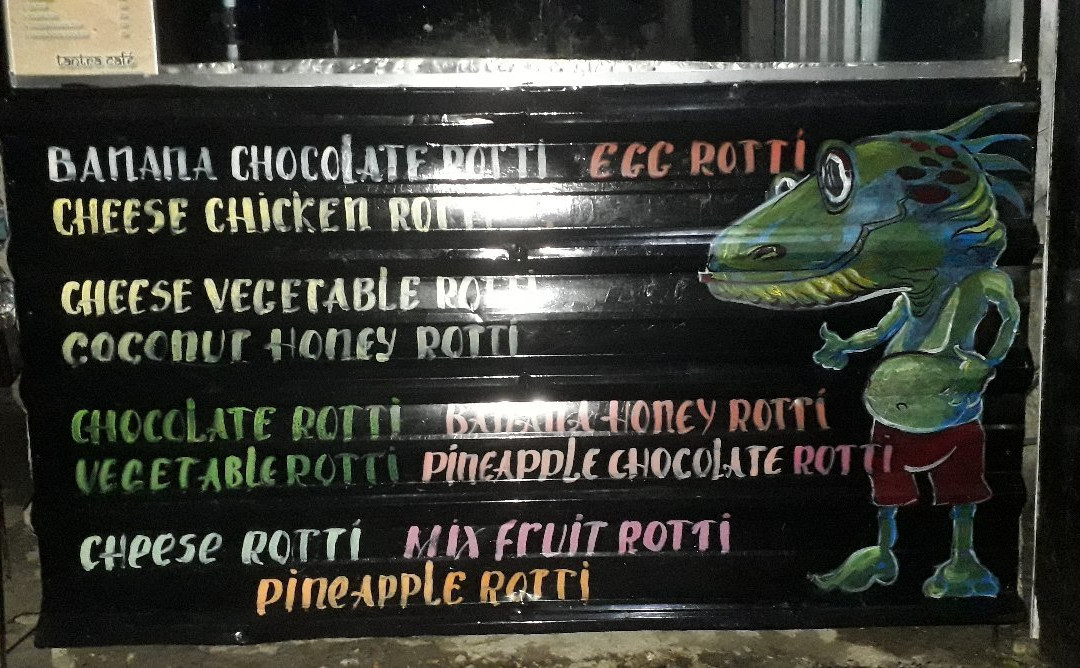 tantra café
BANANA CHOCOLATE ROTTI EGG ROTTI
CHEESE CHICKEN ROTTI
CHEESE VEGETABLE ROTTI
COCONUT HONEY ROTTI
CHOCOLATE ROTTI BANANA HONEY ROTTI
VEGETABLE ROTTI PINEAPPLE CHOCOLATE ROTTI
CHEESE ROTTI MIX FRUIT ROTTI
PINEAPPLE ROTTI